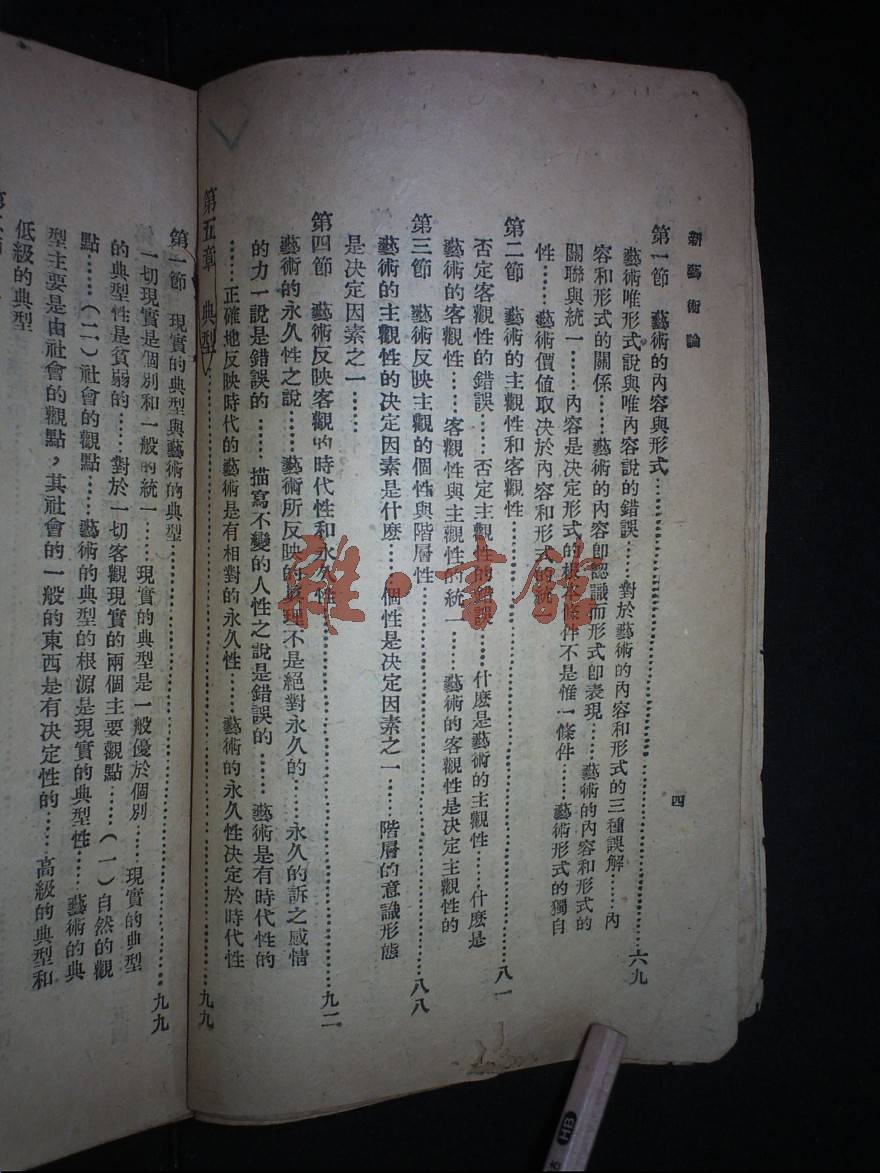 新藝術論
四
第一節　藝術的內容與形式……六九
藝術唯形式說與唯內容說的錯誤……對於藝術的內容和形式的三種誤解……內
容和形式的關係……藝術的內容卽認識而形式卽表現……藝術的內容和形式的
關聯與統一……內容是决定形式的根本條件不是惟一條件……藝術形式的獨自
性……藝術價値取决於內容和形式的統一
第二節　藝術的主觀性和客觀性……八一
否定客觀性的錯誤……否定主觀性的錯誤……什麽是藝術的主觀性……什麽是
藝術的客觀性……客觀性與主觀性的統一……藝術的客觀性是决定主觀性的
第三節　藝術反映主觀的個性與階層性……八八
藝術的主觀性的决定因素是什麽……個性是决定因素之一……階層的意識形態
是决定因素之一……
第四節　藝術反映客觀的時代性和永久性……九二
藝術的永久性之說……藝術所反映的眞理不是絕對永久的……永久的訴之感情
的力一說是錯誤的……描寫不變的人性之說是錯誤的……藝術是有時代性的
……正確地反映時代的藝術是有相對的永久性……藝術的永久性决定於時代性
第五章　典型……九九
第一節　現實的典型與藝術的典型……九九
一切現實是個別和一般的統一……現實的典型是一般優於個別……現實的典型
的典型性是貧弱的……對於一切客觀現實的兩個主要觀點……（一）自然的觀
點……（二）社會的觀點……藝術的典型的根源是現實的典型性……藝術的典
型主要是由社會的觀點，其社會的一般的東西是有决定性的……高級的典型和
低級的典型
雜·書館
HB